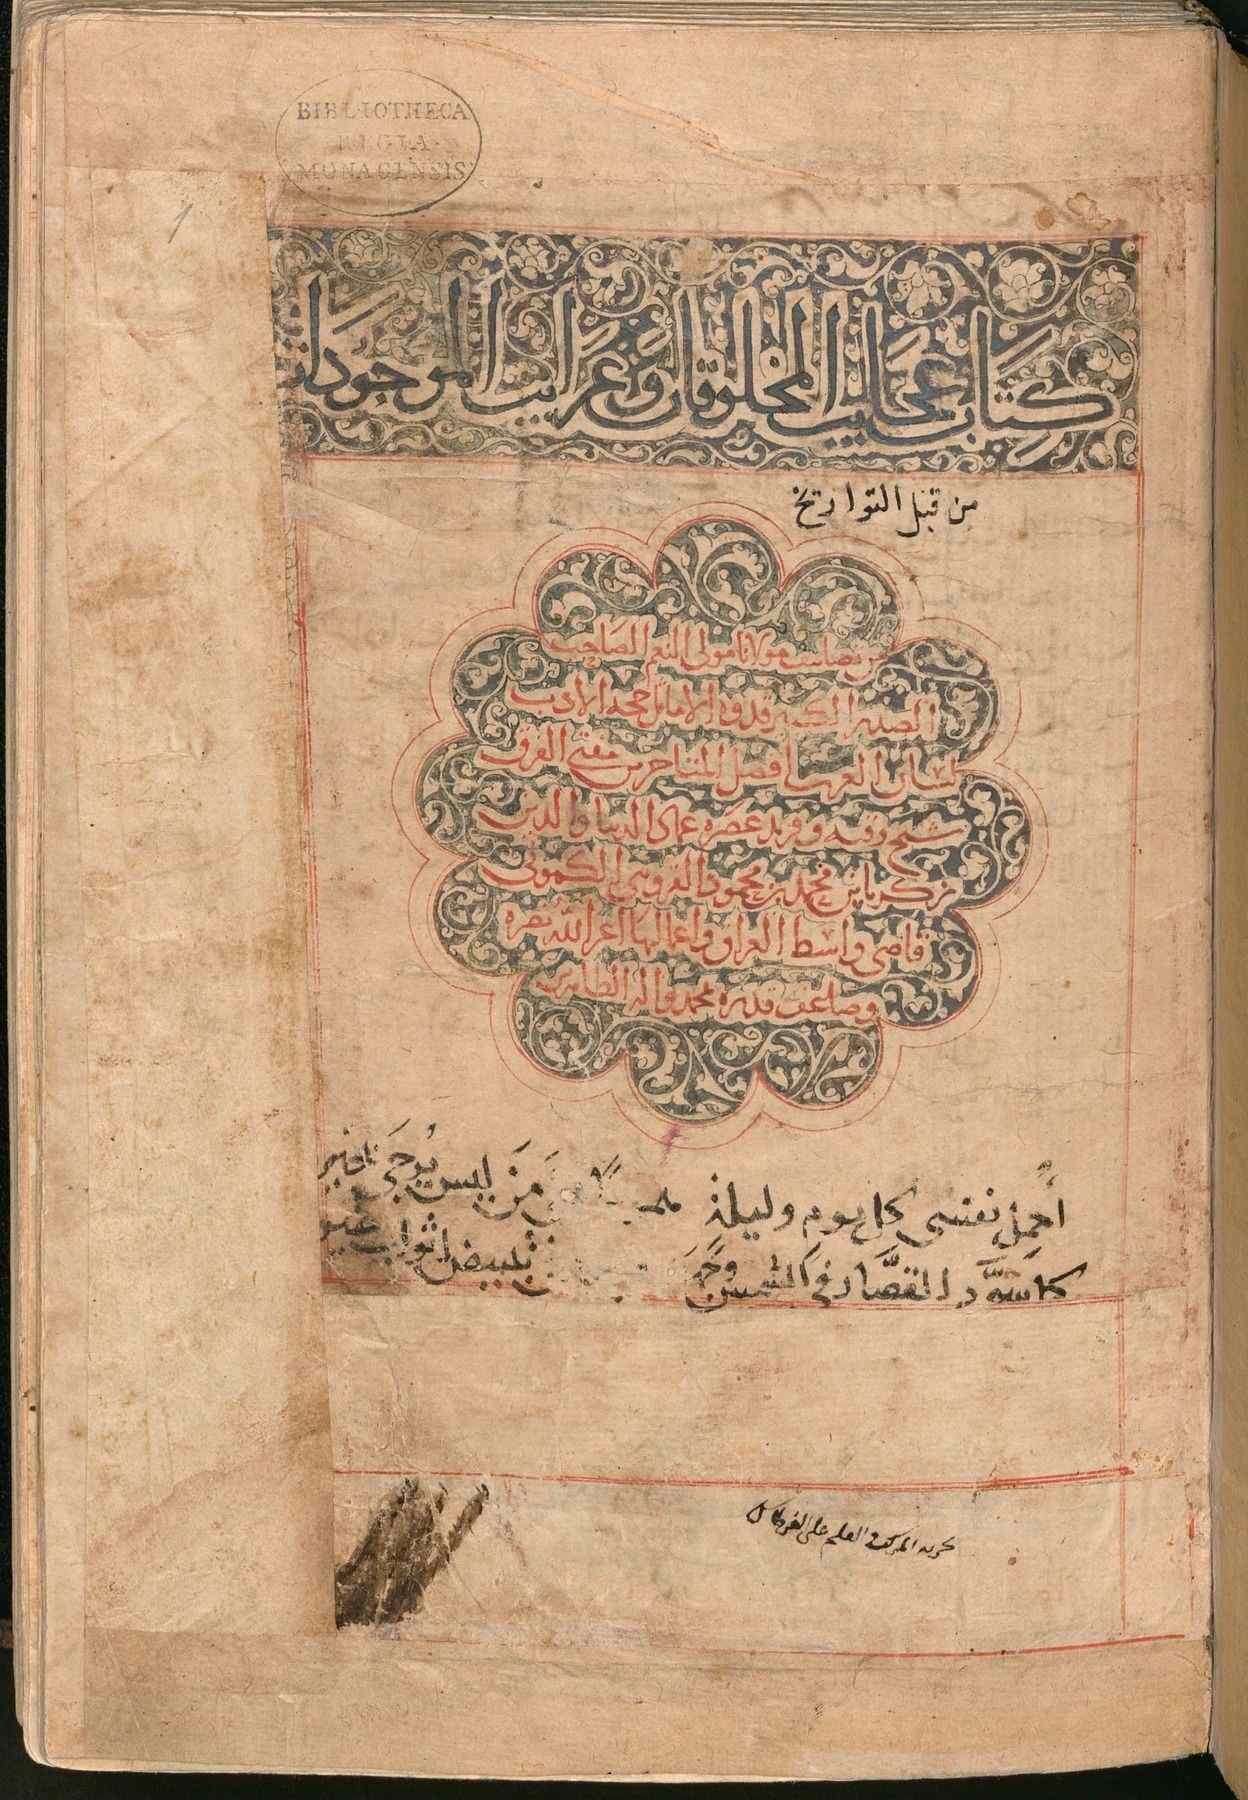 BIBLIOTHECA
REGIA
MONACENSIS
1
كتاب عجايب المخلوقات وغرايب الموجودات
من قبل التواريخ
من تصانيف مولانا مولى النعم الصاحب
الصدر الكبير قدوة الاماثل حجة الادب
لسان العرب افضل المتاخرين مفتي الفرق
شيخ وقته وفريد عصره عماد الدنيا والدين
زكريا بن محمد بن محمود القزويني الكموني
قاضي واسط العراق واعمالها اعز الله نصره
وضاعف قدره بمحمد واله الطاهرين
أحمل نفسي كل يوم وليلة من ليس يرجى
كما سود القصار في الشمس وجهه تبييض اثواب
العلم على